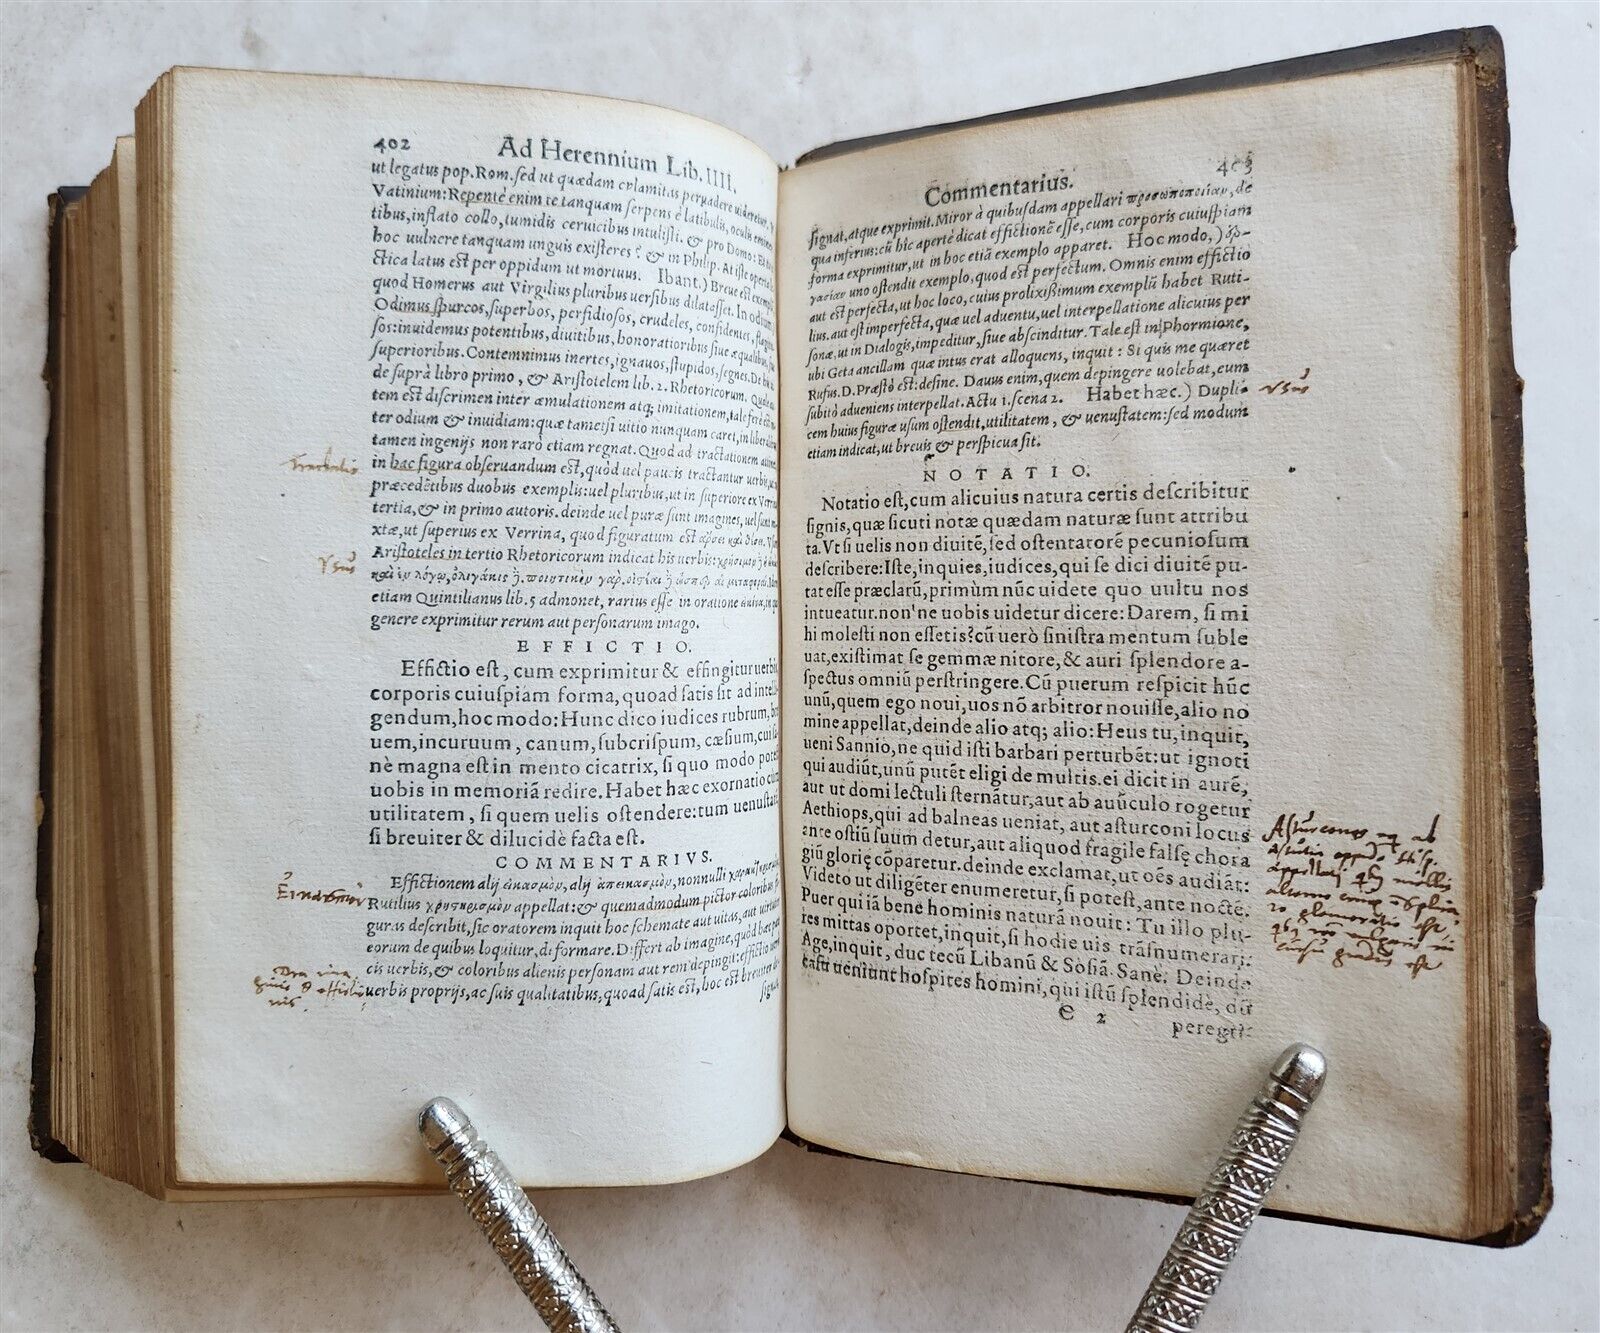 402 Ad Herennium Lib. IIII.
ut legatus pop. Rom. sed ut quædam calamitas peruadere uideretur.
Vatinium: Repentè enim te tanquam serpens è latibulis, oculis
tibus, inflato collo, tumidis ceruicibus intulisti. & pro Domo:
hoc uulnere tanquam unguis existeres? & in Philip. At iste
ctica latus est per oppidum ut mortuus. Ibant.) Breue est
quod Homerus aut Virgilius pluribus uersibus dilatasset. In odium,
Odimus spurcos, superbos, perfidiosos, crudeles, confidentes,
sos: inuidemus potentibus, diuitibus, honoratioribus siue æqualibus,
superioribus. Contemnimus inertes, ignauos, stupidos, segnes. De
de suprà libro primo, & Aristotelem lib. 2. Rhetoricorum.
tem est discrimen inter æmulationem atq; imitationem, tale ferè est
ter odium & inuidiam: quæ tametsi uitio nunquam caret, in
tamen ingenijs non rarò etiam regnat. Quod ad tractationem
in hac figura obseruandum est, quòd uel paucis tractantur uerbis,
præcedētibus duobus exemplis: uel pluribus, ut in superiore ex Verrina
tertia, & in primo autoris. deinde uel puræ sunt imagines, uel sunt
xtæ, ut superius ex Verrina, quod figuratum est
Vsus
Aristoteles in tertio Rhetoricorum indicat his uerbis:
καὶ ἐν λόγῳ, ὀλιγάκις
etiam Quintilianus lib. 5 admonet, rarius esse in oratione
genere exprimitur rerum aut personarum imago.
EFFICTIO.
Effictio est, cum exprimitur & effingitur uerbis
corporis cuiuspiam forma, quoad satis sit ad intelli
gendum, hoc modo: Hunc dico iudices rubrum, bre
uem, incuruum, canum, subcrispum, cæsium, cui
nè magna est in mento cicatrix, si quo modo potest
uobis in memoriā redire. Habet hæc exornatio cum
utilitatem, si quem uelis ostendere: tum uenustatē
si breuiter & dilucidè facta est.
COMMENTARIVS.
Effictionem alij εἰκασμὸν, alij ἀπεικασμὸν, nonnulli
Rutilius appellat: & quemadmodum pictor coloribus
guras describit, sic oratorem inquit hoc schemate aut uitas, aut
eorum de quibus loquitur, diformare. Differt ab imagine, quòd hæc
cis uerbis, & coloribus alienis personam aut rem depingit: effictio
uerbis proprijs, ac suis qualitatibus, quoad satis est, hoc est breuiter
signat,
Commentarius. 403
signat, atque exprimit. Miror à quibusdam appellari προσωποποιίαν, de
qua inferius: cū hîc apertè dicat effictionē esse, cum corporis cuiuspiam
forma exprimitur, ut in hoc etiā exemplo apparet. Hoc modo,)
uno ostendit exemplo, quod est perfectum. Omnis enim effictio
aut est perfecta, ut hoc loco, cuius prolixißimum exemplū habet Ruti-
lius. aut est imperfecta, quæ uel aduentu, uel interpellatione alicuius per
sonæ, ut in Dialogis, impeditur, siue abscinditur. Tale est in Phormione,
ubi Geta ancillam quæ intus erat alloquens, inquit: Si quis me quæret
Rufus. D. Præstò est: desine. Dauus enim, quem depingere uolebat, eum
subitò adueniens interpellat. Actu 1. scena 2. Habet hæc.) Dupli-
Vsus
cem huius figuræ usum ostendit, utilitatem, & uenustatem: sed modum
etiam indicat, ut breuis & perspicua sit.
NOTATIO.
Notatio est, cum alicuius natura certis describitur
signis, quæ sicuti notæ quædam naturæ sunt attribu
ta. Vt si uelis non diuitē, sed ostentatorē pecuniosum
describere: Iste, inquies, iudices, qui se dici diuitē pu-
tat esse præclarū, primùm nūc uidete quo uultu nos
intueatur. non'ne uobis uidetur dicere: Darem, si mi
hi molesti non essetis? cū uerò sinistra mentum suble
uat, existimat se gemmæ nitore, & auri splendore a-
spectus omniū perstringere. Cū puerum respicit hūc
unū, quem ego noui, uos nō arbitror nouisse, alio no
mine appellat, deinde alio atq; alio: Heus tu, inquit,
ueni Sannio, ne quid isti barbari perturbēt: ut ignoti
qui audiūt, unū putēt eligi de multis. ei dicit in aurē,
aut ut domi lectuli sternātur, aut ab auūculo rogetur
Aethiops, qui ad balneas ueniat, aut asturconi locus
ante ostiū suum detur, aut aliquod fragile falsę chora
giū glorię cōparetur. deinde exclamat, ut oēs audiāt:
Videto ut diligēter enumeretur, si potest, ante noctē.
Puer qui iā bene hominis naturā nouit: Tu illo plu-
res mittas oportet, inquit, si hodie uis trāsnumerari:
Age, inquit, duc tecū Libanū & Sosiā. Sanè. Deinde
casu ueniunt hospites homini, qui istū splendidè, dū
C 2 peregri-